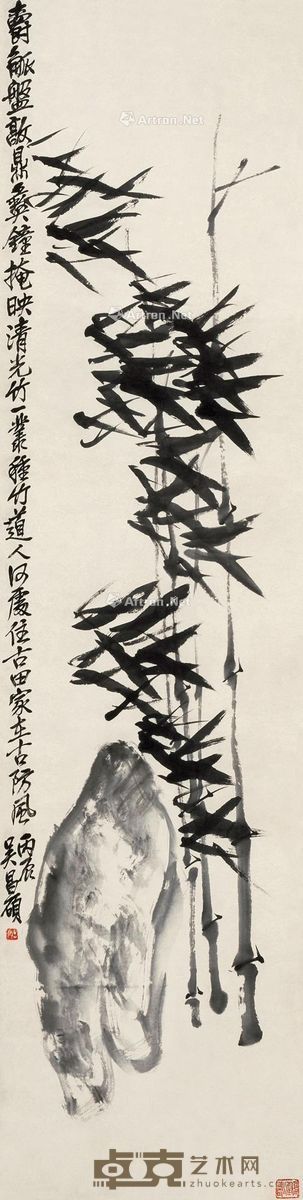 爵觚盤敦鼎彝鐘掩映清光竹一叢種竹道人何處住古田家在古防風
丙辰
吳昌碩
Artron.Net
Artron.Net
Artron.Net
Artron.Net
卓克艺术网
zhuokearts.com